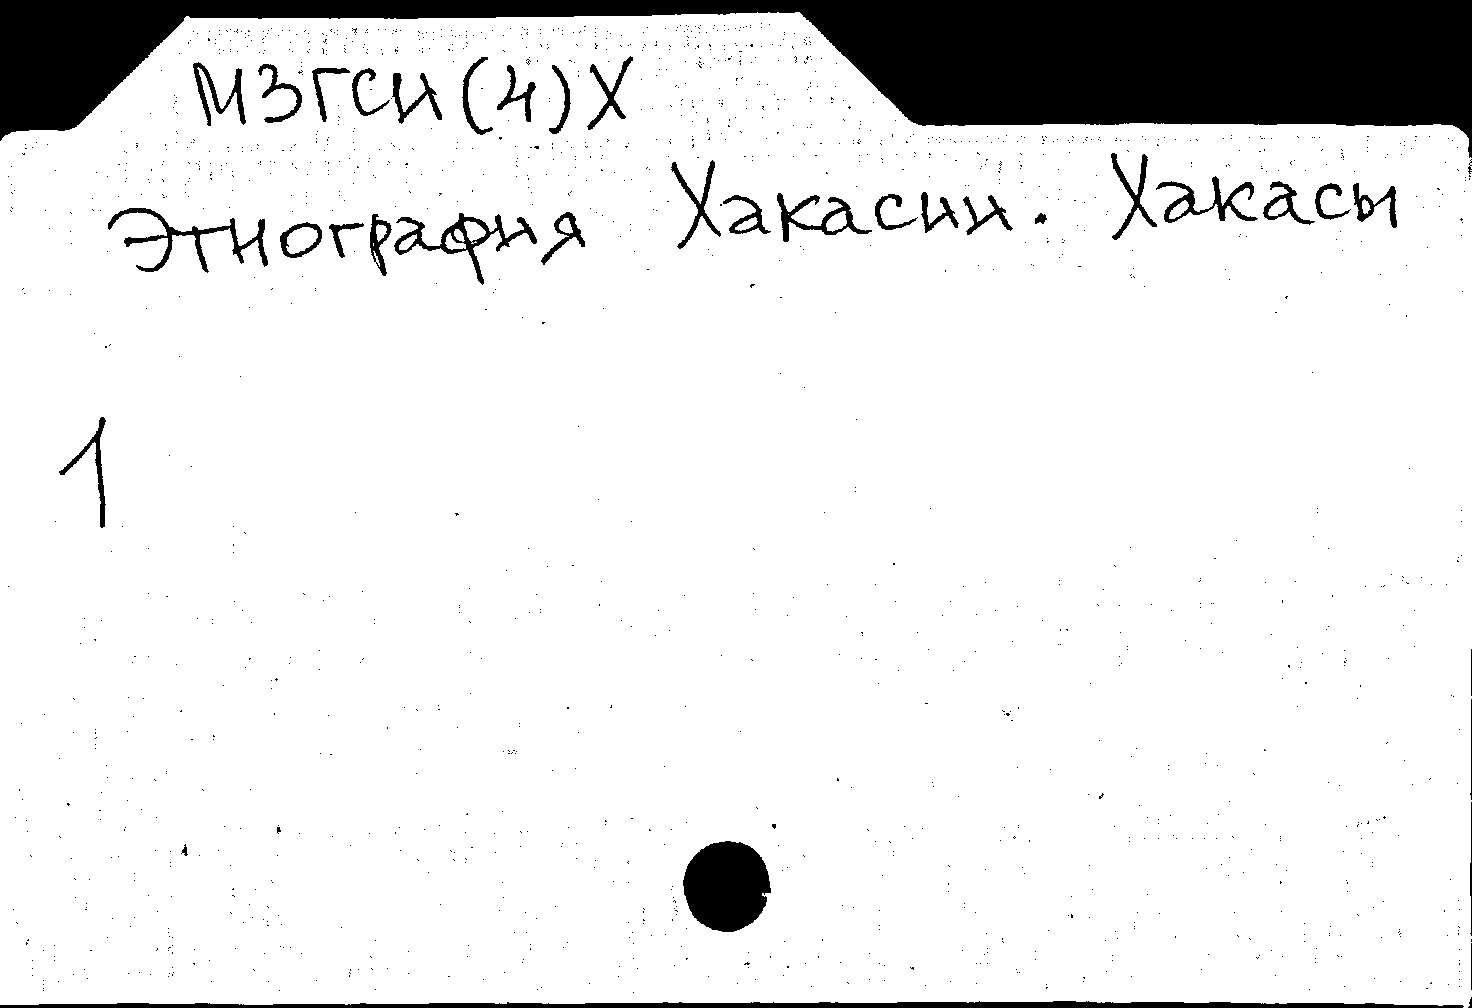 МЗГСИ(4)Х
Этнография Хакасии. Хакасы
1